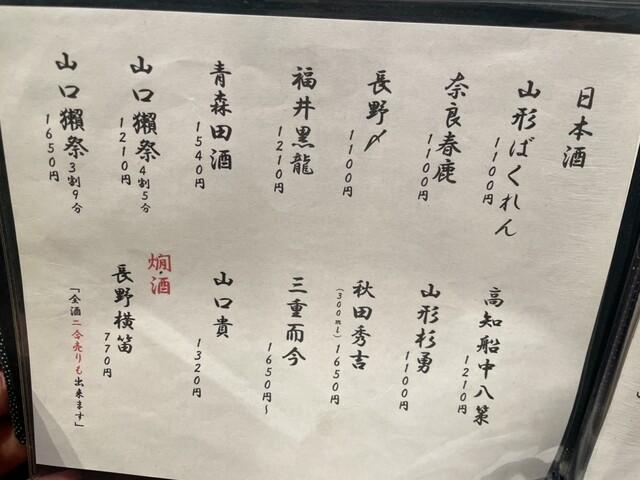 日本酒
山形ばくれん
1100円
奈良春鹿
1100円
長野〆
1100円
福井黒龍
1210円
青森田酒
1540円
山口獺祭4割5分
1210円
山口獺祭3割9分
1650円
高知船中八策
1210円
山形杉勇
1100円
秋田秀吉
(300ml)1650円
三重而今
1650円~
山口貴
1320円
燗・酒
長野横笛
770円
「全酒二合売りも出来ます」